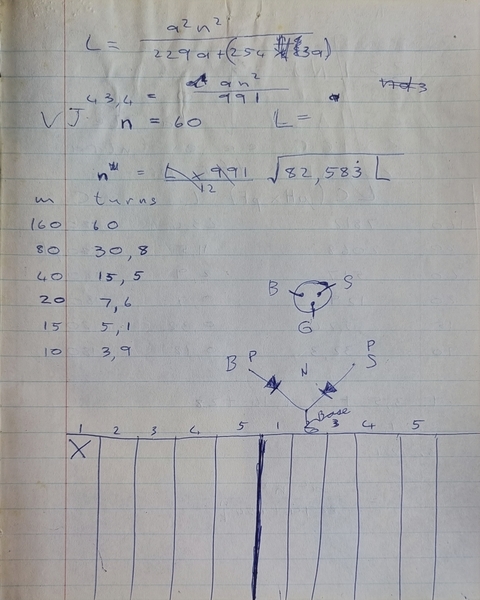 L = a²n² / 229a + (254 3a)
43,4 = an² / 991
VJ n = 60 L =
n = L × 991 / 12 √82,583 L
m turns
160 60
80 30,8
40 15,5
20 7,6
15 5,1
10 3,9
B S
G
B P N P S
Base
1 2 3 4 5 1 2 3 4 5
X